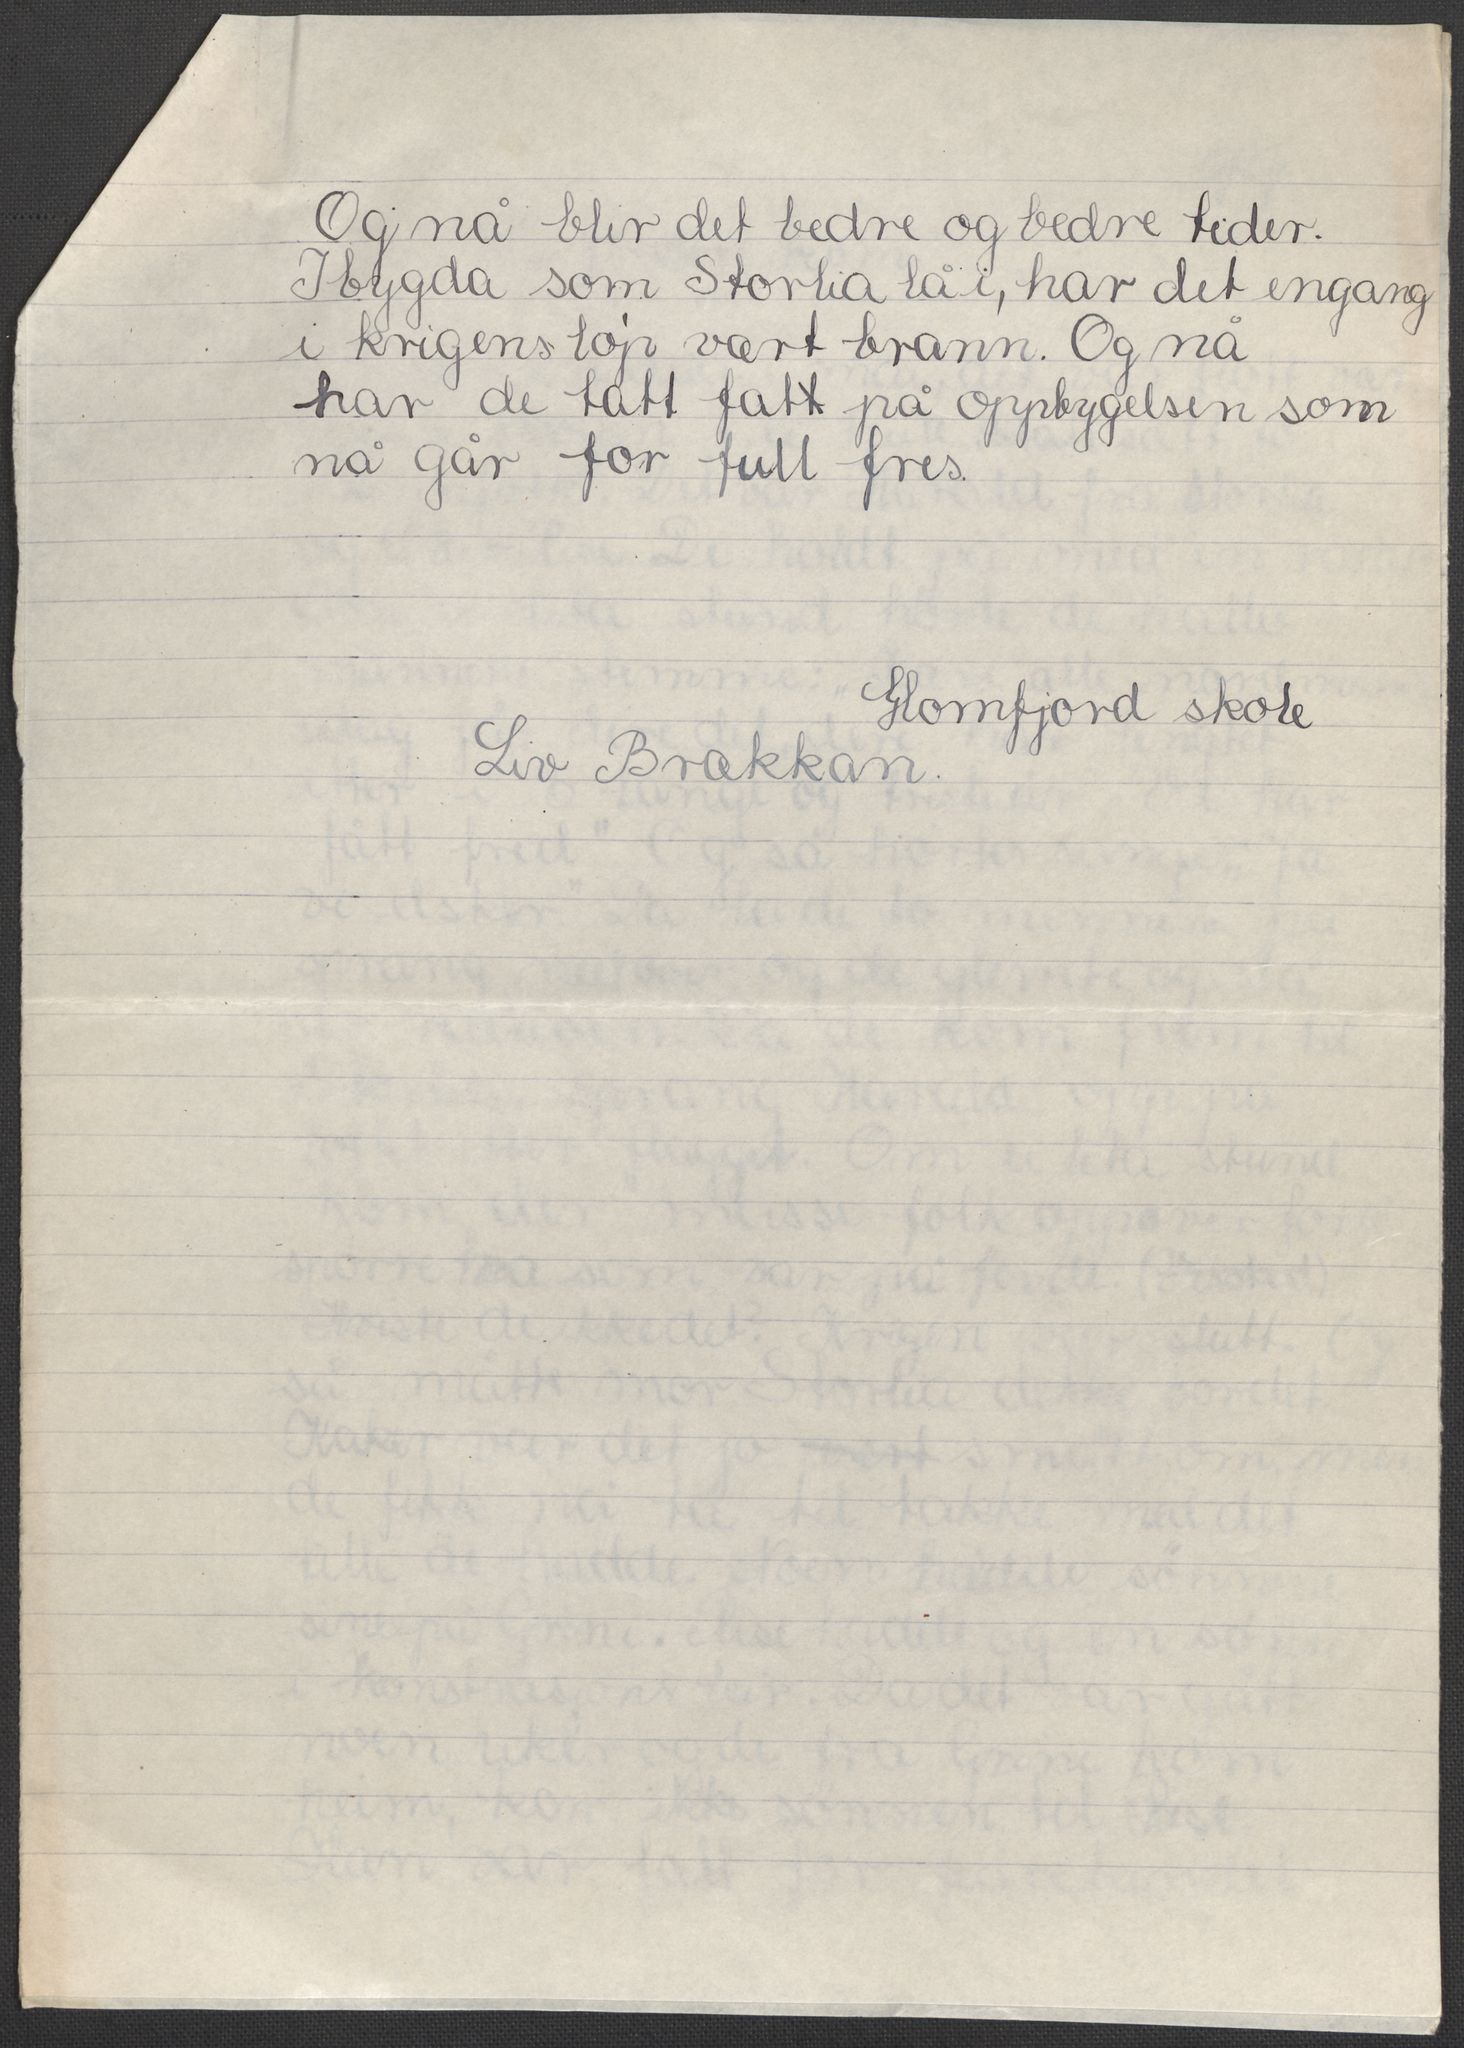 Og nå blir det bedre og bedre tider.
I bygda som Storlia lå i, har det engang
i krigens løp vært brann. Og nå
har de tatt fatt på oppbygelsen som
nå går for full fres.
Glomfjord skole
Liv Brækkan.